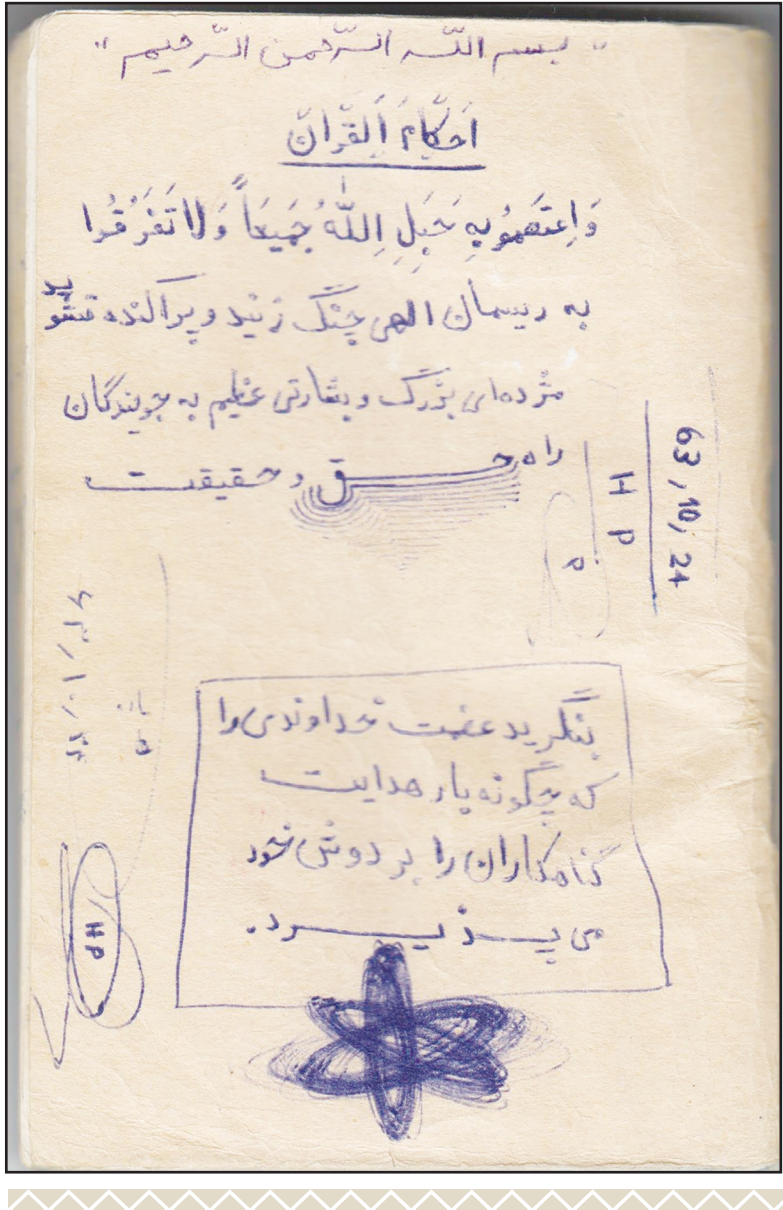 " بسم اللّه الرّحمن الرّحیم "
اَحکامَ اَلقُرانّ
وَاِعتَصَموُبِهِ حَبَلِ اِللّهُ جَمیَعاً وَلاتَفَرَقُوا
به ریسمان الهی چنگ زنید و پراکنده نشوید
مژده‌ای بزرگ و بشارتی عظیم به جویندگان
راه حـــق و حقیقت
63, 10, 24
H P
P
HP
بنگرید عضمت خداوندی را
که چگونه بار هدایت
گناهکاران را بر دوش خود
می پـــذیـــرد.